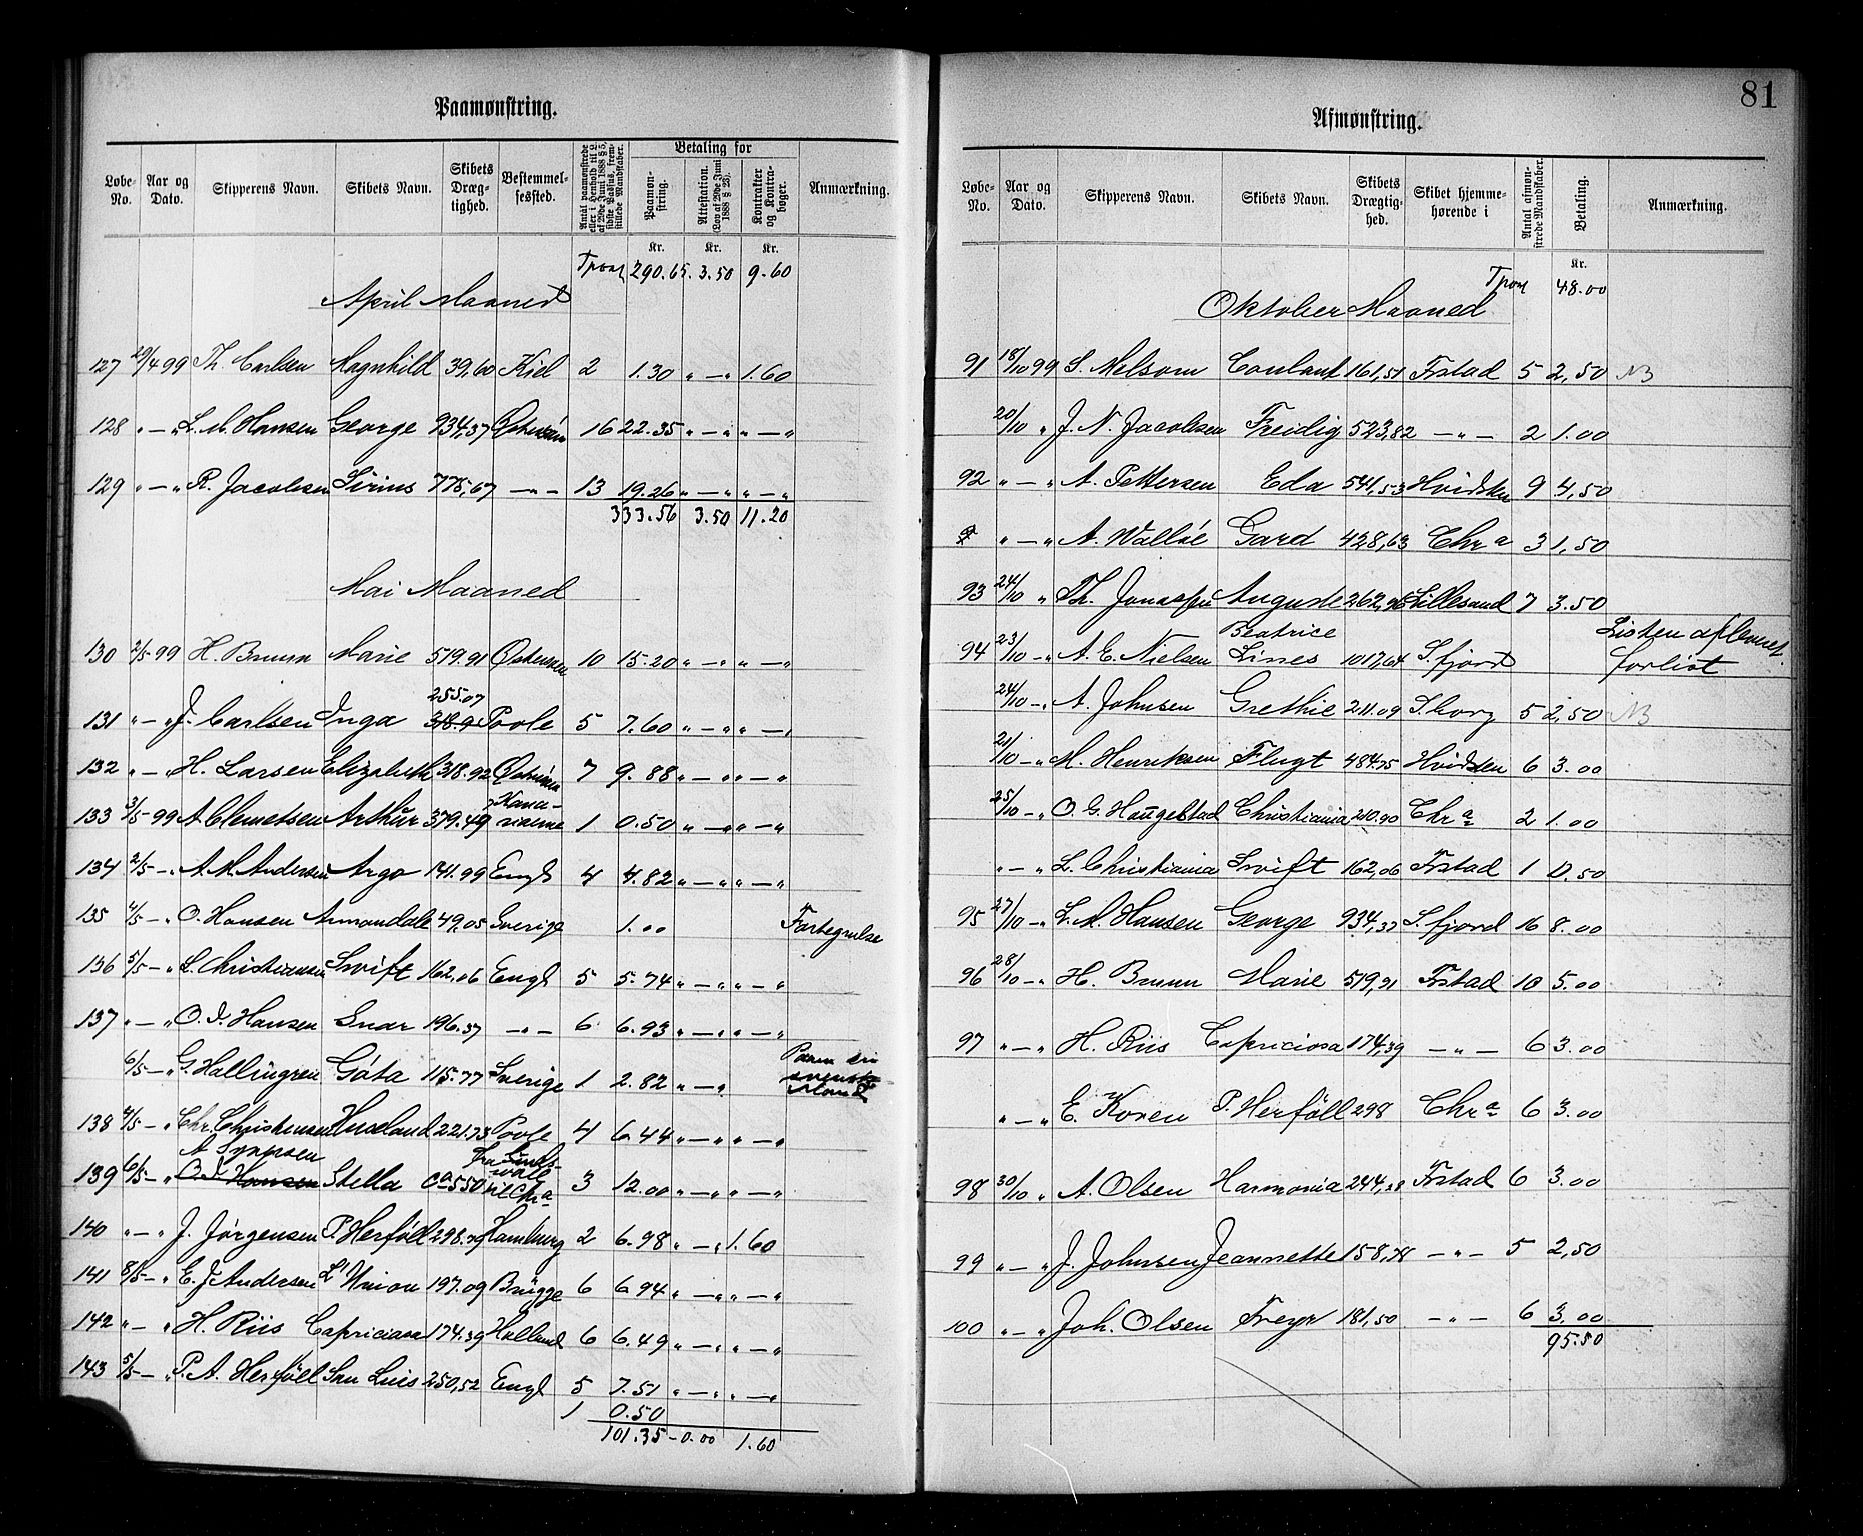 Paamønstring.
Løbe-No. | Aar og Dato. | Skipperens Navn. | Skibets Navn. | Skibets Dræg-tighed. | Bestemmel-sessted. | Antal paamønstrede eller i Henhold til L. af 29de Juni 1888 § 5, sidste Passus, frem-stillede Mandskaber. | Betaling for | Paamøn-string. | Attestation. (Lov af 29de Juni 1888 § 23). | Kontrakter og Kontra-bøger. | Anmærkning.
Kr. Kr. Kr.
Tpont 290.65. 3.50 9.60
April Maaned
127 29/4 99 Th. Carlsen Magnhild 39,60 Kiel 2 1.30 " — " 1.60
128 " — " L. M. Hansen George 934,37 Østersøen 16 22.35 " — " " — "
129 " — " R. Jacobsen Sirius 775,67 — " — 13 19.26 " — " " — "
333.56 3.50 11.20
Mai Maaned
130 2/5 99 H. Bruun Marie 519.91 Østersøen 10 15.20 " — " " — "
255.07
131 " — " J. Carlsen Inga 318.92 Poole 5 7.60 " — " " — "
132 " — " H. Larsen Elizabeth 318.92 Østersøen 7 9.88 " — " " — "
133 3/5 99 A Clemetsen Arthur 379.49 Kana-rierne 1 0.50 " — " " — "
134 2/5 — " A. M. Andersen Argo 141.99 Engl 4 4.82 " — " " — "
135 4/5 — " O. Hansen Armandale 49,05 Sverige 1.00
136 5/5 — " L. Christiansen Swift 162,06 Engl 5 5.74 " — " " — "
137 " — " O. I. Hansen Snar 196.37 — " — 6 6.93 " — " " — "
6/5 — " G. Hallingren Göta 115.77 Sverige 1 2.82 " — " Paam en svensk Mand
138 4/5 — " Chr. Christensen 221.73 Poole 4 6.44 " — " " — "
A
139 6/5 — " O. I. Hansen Stella Ca 550 3 12.00 " — " " — "
140 " — " J. Jørgensen P. Herföll 298. Hamburg 2 6.98 " — " 1.60
141 8/5 — " E. J. Andersen L'Union 197.09 Brügge 6 6.94 " — " " — "
142 " — " H. Riis Capriciosa 174.39 Holland 6 6.49 " — " " — "
143 5/5 — " P. A. Herföll San Luis 250,52 Engl 5 7.51 " — " " — "
1 0.50
101.35 — 0.00 1.60
81
Afmønstring.
Løbe-No. | Aar og Dato. | Skipperens Navn. | Skibets Navn. | Skibets Drægtig-hed. | Skibet hjemme-hørende i | Antal afmøn-strede Mandskaber. | Betaling. | Anmærkning.
Kr.
Tpont 48.00
Oktober Maaned
91 18/10 99 S. Melsom 161,51 Frstad 5 2,50 NB
20/10 " J. N. Jacobsen Freidig 523,82 — " — 2 1.00
92 " — " A. Pettersen Eda 541,53 Hvidsten 9 4,50
" — " A. Walløe Gard 428,63 Chr a 3 1,50
93 24/10 " Th. Auguste 262,96 Lillesand 7 3.50
Beatrice Listen afleveret
94 23/10 — " A. E. Nielsen Lines 1017,64 S. fjord forlist
24/10 — " A. Johnsen Grethie 211.09 S.borg 5 2,50 NB
21/10 — " M. Henriksen Flugt 484.75 Hvidsten 6 3.00
25/10 — " O. G. Haugestad Christiania 210.90 Chr a 2 1.00
" — " L. Christiania Swift 162,06 Frstad 1 0.50
95 27/10 — " L. M. Hansen George 934,37 S. fjord 16 8.00
96 28/10 — " H. Bruun Marie 519,91 Frstad 10 5.00
97 " — " H. Riis Capriciosa 174,39 — " — 6 3.00
" — " E. Koren P. Herföll 298 Chr a 6 3.00
98 30/10 " A. Olsen Harmonia 244,38 Frstad 6 3.00
99 " — " J. Johnsen Jeannette 158,78 — " — 5 2,50
100 " — " Joh. Olsen Freyr 181,50 — " — 6 3.00
95.50